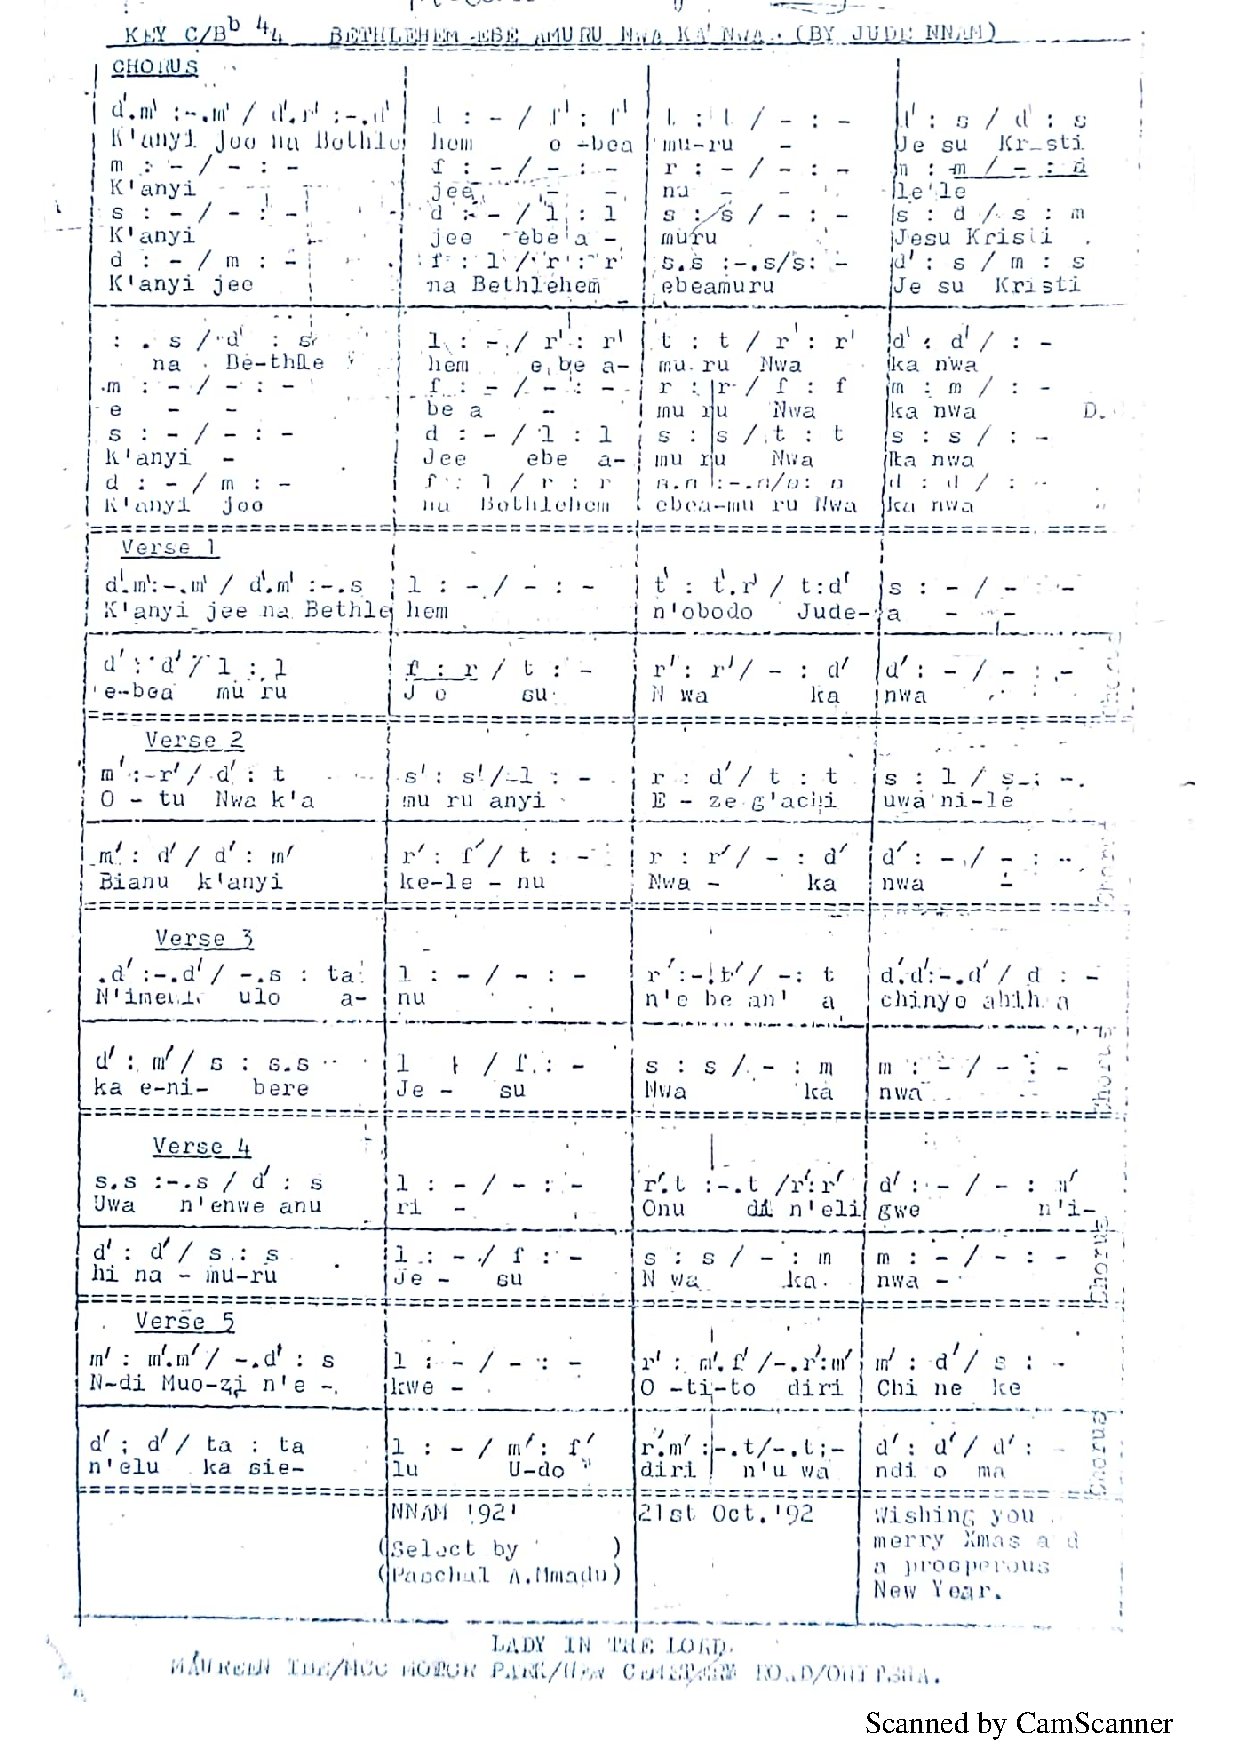 KEY C/Bb 4/4 BETHLEHEM EBE AMURU NWA KA' NWA. (BY JUDE NNAM)
CHORUS
d'.m' :-.m' / d'.r' :-.d' l : - / r' : r' t : t / - : - d' : s / d' : s
K'anyi Jee na Bethle hem o -bea mu-ru - Je su Kr-sti
m : - / - : - f : - / - : - r : - / - : - m : m / - : d
K'anyi jee - - na - - le'le
s : - / - : - d : - / l : l s : s / - : - s : d / s : m
K'anyi jee ebe a - muru Jesu Kristi
d : - / m : - f : l / r : r s.s :-.s/s: - d' : s / m : s
K'anyi jee na Bethlehem ebeamuru Je su Kristi
: . s / d' : s l : - / r' : r' t : t / r' : r' d' : d' / : -
na Be-thle hem e be a- mu ru Nwa ka nwa
m : - / - : - f : - / - : - r : r / f : f m : m / : -
e - - be a - mu ru Nwa ka nwa D.
s : - / - : - d : - / l : l s : s / t : t s : s / : -
K'anyi - Jee ebe a- mu ru Nwa ka nwa
d : - / m : - f : l / r : r d : d / : -
K'anyi jee na Bethlehem ebea-mu ru Nwa ka nwa
Verse 1
d'.m':-.m' / d'.m' :-.s l : - / - : - t : t.r' / t:d' s : - / - : -
K'anyi jee na Bethle hem n'obodo Jude- a - -
d' : d' / l : l f : r / t : - r' : r' / - : d' d' : - / - : -
e-bea mu ru J e su N wa ka nwa
Verse 2
m' :-r' / d' : t s' : s' / l : - r : d' / t : t s : l / s : -
O - tu Nwa k'a mu ru anyi E - ze g'achi uwa ni-le
m' : d' / d' : m' r' : f' / t : - r : r' / - : d' d' : - / - : -
Bianu k'anyi ke-le - nu Nwa - ka nwa -
Chorus
Verse 3
.d' :-.d' / -.s : ta l : - / - : - r' :-.t' / -: t d'.d':-.d' / d : -
N'ime ulo a- nu n'e be an' a chinyo abih a
d' : m' / s : s.s l : / f : - s : s / - : m m : - / - : -
ka e-ni- bere Je - su Nwa ka nwa
Chorus
Verse 4
s.s :-.s / d' : s l : - / - : - r'.t :-.t /r':r' d' : - / - : m'
Uwa n'enwe anu ri - Onu di n'eli gwe n'i-
d' : d' / s : s l : - / f : - s : s / - : m m : - / - : -
hi na - mu-ru Je - su N wa ka nwa -
Chorus
Verse 5
m' : m'.m' / -.d' : s l : - / - : - r' : m'.f' /-.r':m' m' : d' / s : -
N-di Muo-zi n'e - kwe - O -ti-to diri Chi ne ke
d' : d' / ta : ta l : - / m' : f' r'.m' :-.t/-.t:- d' : d' / d' : -
n'elu ka sie- lu U-do diri n'u wa ndi o ma
Chorus
NNAM '92' 21st Oct.'92 Wishing you
(Select by ) merry Xmas a d
(Paschal A.Mmadu) a prosperous
New Year.
LADY IN THE LORD.
MOTOR PARK/NEW CEMETERY ROAD/ONITSHA.
Scanned by CamScanner